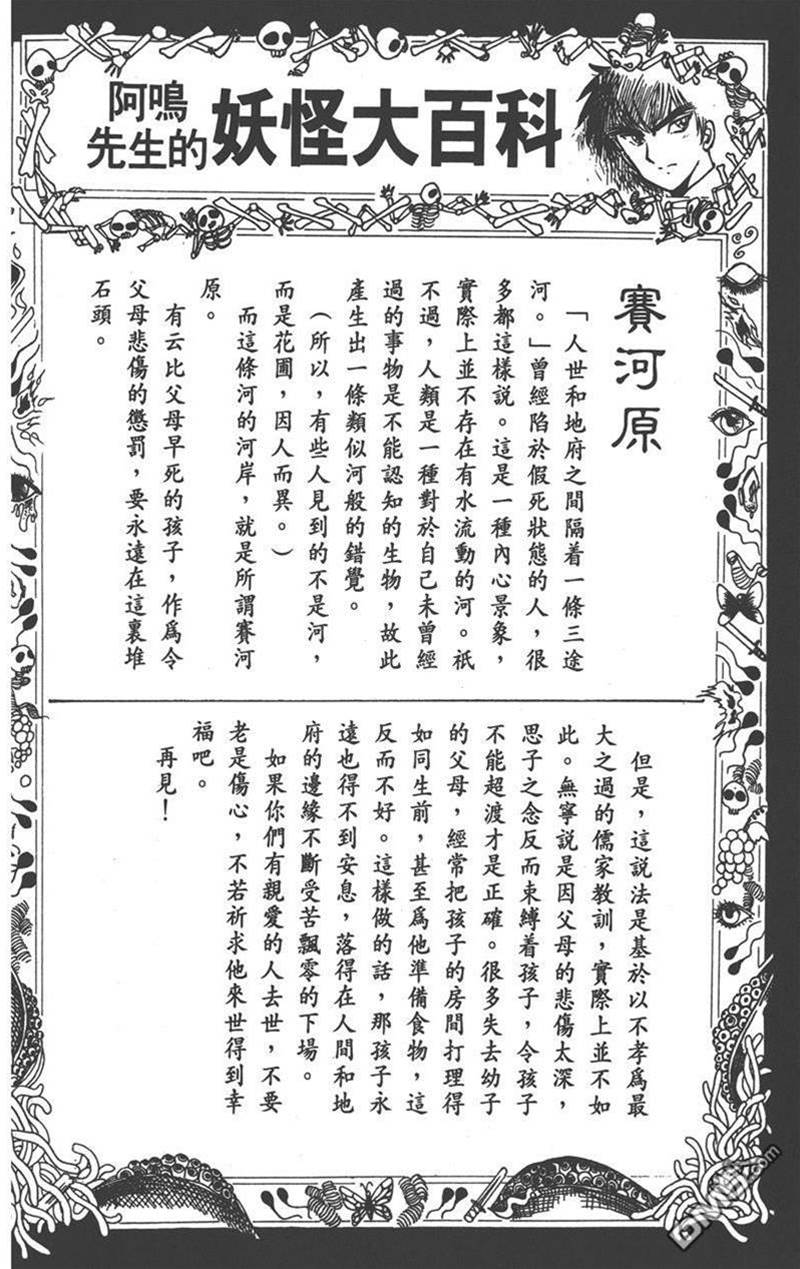 阿鳴
先生的
妖怪大百科
賽河原
「人世和地府之間隔着一條三途
河。」曾經陷於假死狀態的人，很
多都這樣說。這是一種內心景象，
實際上並不存在有水流動的河。祇
不過，人類是一種對於自己未曾經
過的事物是不能認知的生物，故此
產生出一條類似河般的錯覺。
（所以，有些人見到的不是河，
而是花圃，因人而異。）
而這條河的河岸，就是所謂賽河
原。
有云比父母早死的孩子，作爲令
父母悲傷的懲罰，要永遠在這裏堆
石頭。
但是，這說法是基於以不孝爲最
大之過的儒家教訓，實際上並不如
此。無寧說是因父母的悲傷太深，
思子之念反而束縛着孩子，令孩子
不能超渡才是正確。很多失去幼子
的父母，經常把孩子的房間打理得
如同生前，甚至爲他準備食物，這
反而不好。這樣做的話，那孩子永
遠也得不到安息，落得在人間和地
府的邊緣不斷受苦飄零的下場。
如果你們有親愛的人去世，不要
老是傷心，不若祈求他來世得到幸
福吧。
再見！
DM5.com